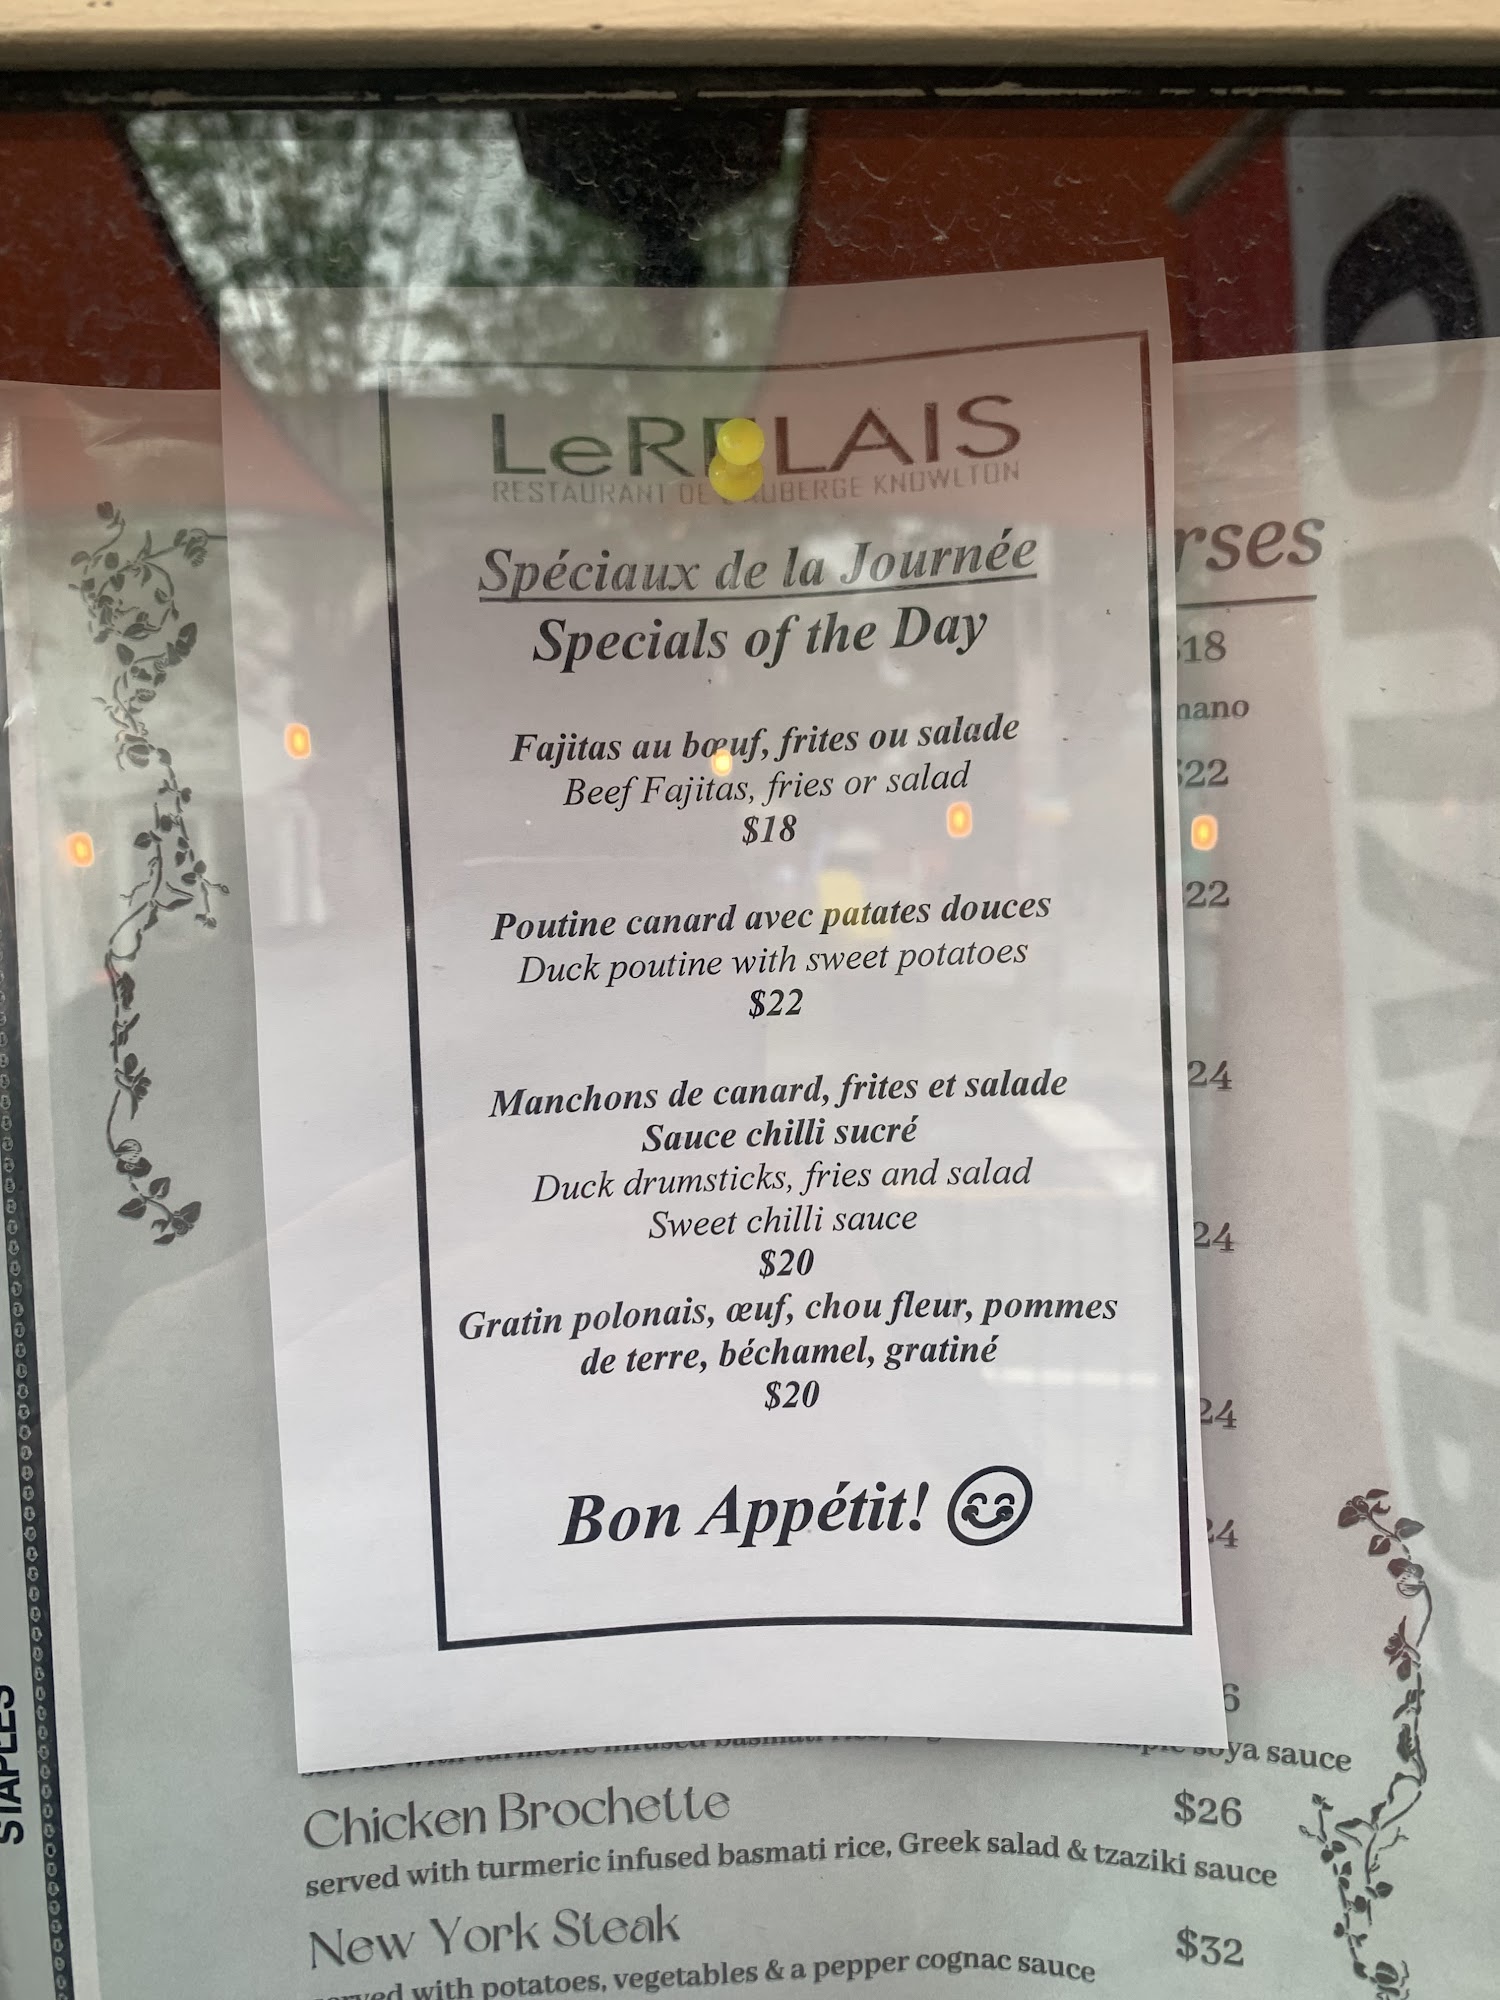 LeRELAIS
RESTAURANT DE L'AUBERGE KNOWLTON
Spéciaux de la Journée
Specials of the Day
Fajitas au bœuf, frites ou salade
Beef Fajitas, fries or salad
$18
Poutine canard avec patates douces
Duck poutine with sweet potatoes
$22
Manchons de canard, frites et salade
Sauce chilli sucré
Duck drumsticks, fries and salad
Sweet chilli sauce
$20
Gratin polonais, œuf, chou fleur, pommes
de terre, béchamel, gratiné
$20
Bon Appétit!
rses
$18
mano
$22
22
24
24
24
24
6
served with turmeric infused basmati rice, soya sauce
Chicken Brochette $26
served with turmeric infused basmati rice, Greek salad & tzaziki sauce
New York Steak $32
served with potatoes, vegetables & a pepper cognac sauce
STAPLES